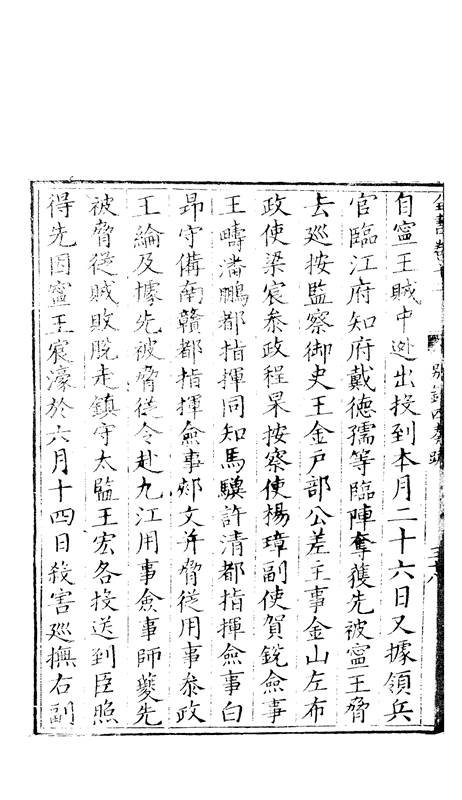 別錄四奏疏
自寗王賊中迯出投到本月二十六日又據領兵
官臨江府知府戴德孺等臨陣奪獲先被寗王脅
去廵按監察御史王金戶部公差主事金山左布
政使梁宸叅政程杲按察使楊璋副使賀銳僉事
王疇潘鵬都指揮同知馬驥許清都指揮僉事白
昻守備南贛都指揮僉事郟文并脅從用事叅政
王綸及據先被脅從令赴九江用事僉事師夔先
被脅從賊敗脫走鎮守太監王宏各投送到臣照
得先因寗王宸濠於六月十四日殺害廵撫右副